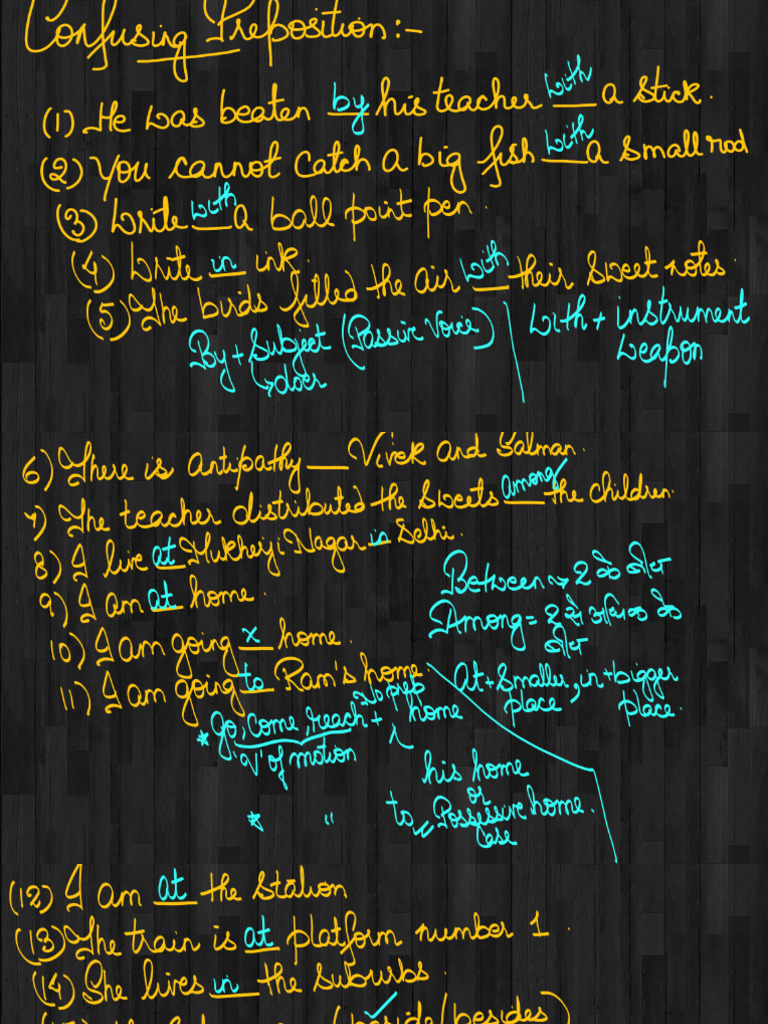 Confusing Preposition:-
(1) He was beaten by his teacher with a stick.
(2) You cannot catch a big fish with a small rod
(3) Write with a ball point pen.
(4) Write in ink.
(5) The birds filled the air with their sweet notes.
By + Subject (Passive Voice) | With + instrument
↳ doer weapon
6) There is antipathy __ Vivek and Salman.
7) The teacher distributed the sweets among the children.
8) I live at Mukherji Nagar in Delhi.
9) I am at home.
Between → 2 के बीच
10) I am going x home.
Among = 2 से अधिक के बीच
11) I am going to Ram's home.
At + smaller place, in + bigger place.
* go, come, reach + no prep home
'V' of motion
his home
or
* " to Possessive case home.
(12) I am at the station
(13) The train is at platform number 1.
(14) She lives in the suburbs.
(beside/besides)